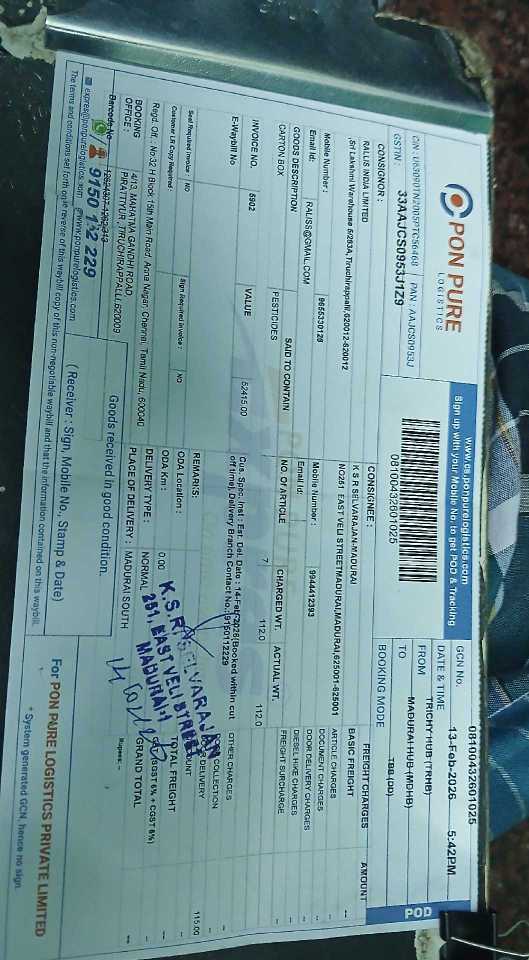 PON PURE
LOGISTICS
www.cs.ponpurelogistics.com
Sign up with your Mobile No. to get POD & Tracking
081004332601025
GCN No. 081004332601025
DATE & TIME 13-Feb-2026 5:42PM
FROM TRICHY HUB (TRHB)
TO MADURAI HUB (MDHB)
BOOKING MODE TBB (DD)
POD
PAN : AAJCS0953J
GSTIN : 33AAJCS0953J1Z9
CONSIGNOR :
RALLIS INDIA LIMITED
Sri Lakshmi Warehouse 5/283A, Tiruchirappalli, 620012-620012
Mobile Number : 9655330128
Email Id: RALISS@GMAIL.COM
CONSIGNEE :
K S R SELVARAJAN-MADURAI
NO281 EAST VELI STREETMADURAI,MADURAI,625001-625001
Mobile Number : 9944412393
Email Id:
GOODS DESCRIPTION SAID TO CONTAIN NO. OF ARTICLE CHARGED WT. ACTUAL WT.
CARTON BOX PESTICIDES 7 112.0 112.0
INVOICE NO. 5902 VALUE 52415.00
E-Waybill No
Cus. Spec. Inst : Est. Del. Date : 14-Feb-2026(Booked within cut
off time) Delivery Branch Contact No.:
REMARKS:
Seal Required Invoice : NO Sign Required Invoice : NO
Customer LR Copy Required :
ODA Location :
ODA Km : 0.00
DELIVERY TYPE : NORMAL
PLACE OF DELIVERY : MADURAI SOUTH
Regd. Off. : No-32 H Block 15th Main Road, Anna Nagar, Chennai, Tamil Nadu, 600040
BOOKING OFFICE : 4/13, MAHATMA GANDHI ROAD,
PIRATTIYUR, TIRUCHIRAPPALLI,620009
FREIGHT CHARGES AMOUNT
BASIC FREIGHT --
ARTICLE CHARGES --
DOCUMENT CHARGES --
DOOR DELIVERY CHARGES --
DIESEL HIKE CHARGES --
FREIGHT SURCHARGE --
OTHER CHARGES --
COLLECTION --
DELIVERY 115.00
TOTAL FREIGHT --
GRAND TOTAL --
Rupees: --
K.S.R. SELVARAJAN
251, EAST VELI STREET
MADURAI-1
9150 112 229
expres@ponpurelogistics.com www.ponpurelogistics.com
Goods received in good condition.
( Receiver : Sign, Mobile No., Stamp & Date)
The terms and conditions set forth on the reverse of this waybill copy of this non-negotiable waybill and that the information contained on this waybill.
For PON PURE LOGISTICS PRIVATE LIMITED
* System generated GCN, hence no sign.